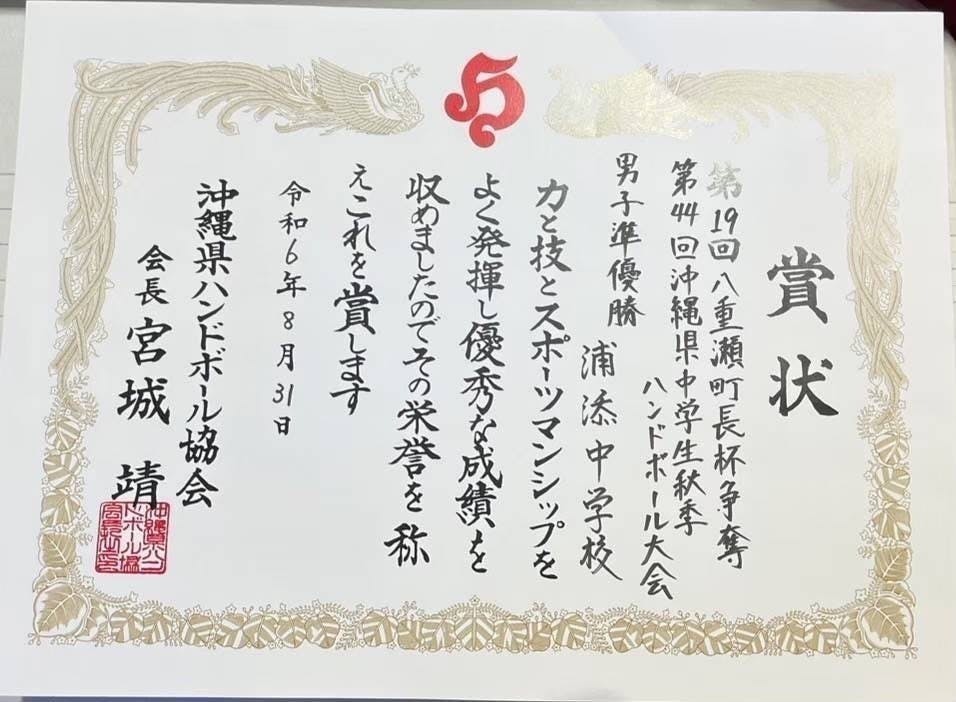 賞状
第19回八重瀬町長杯争奪
第44回沖縄県中学生秋季
ハンドボール大会
男子準優勝
浦添中学校
力と技とスポーツマンシップを
よく発揮し優秀な成績を
収めましたのでその栄誉を称
えこれを賞します
令和6年8月31日
沖縄県ハンドボール協会
会長宮城靖